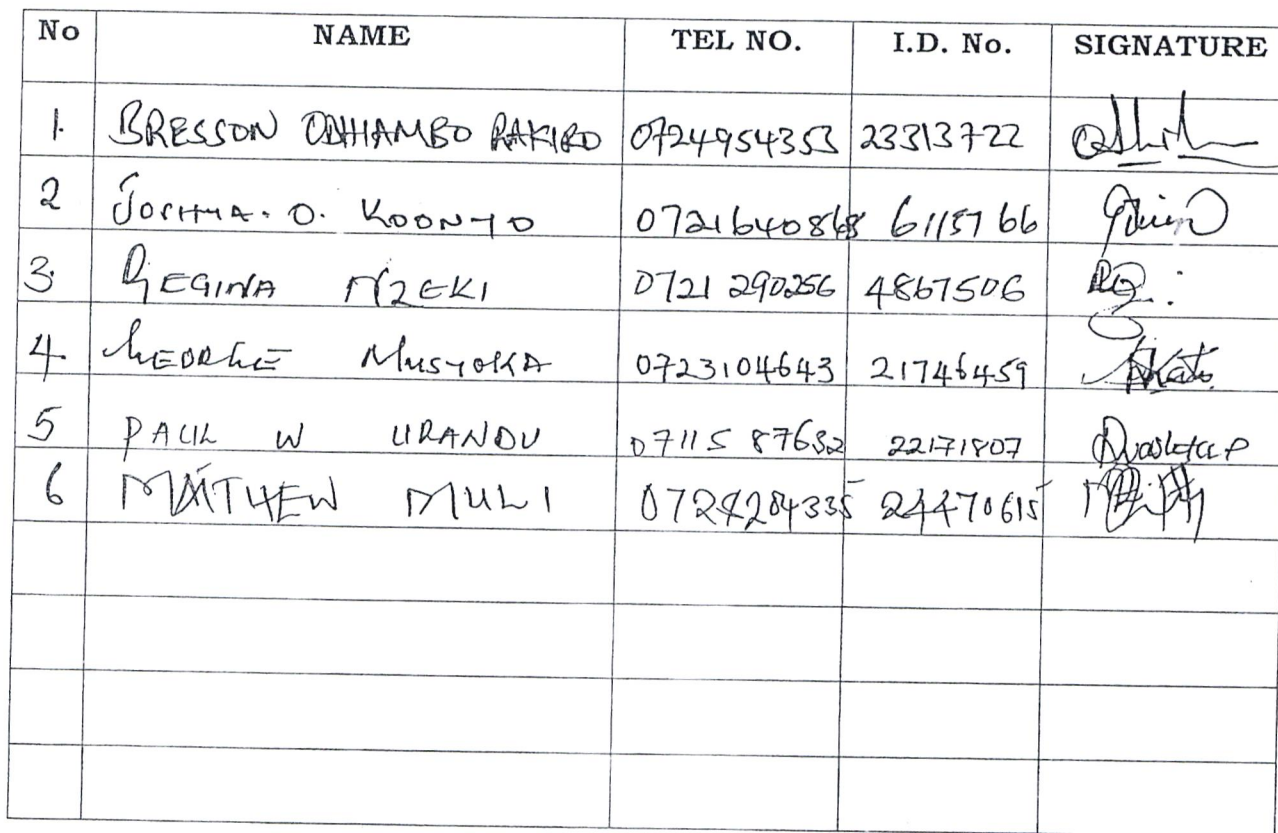 No NAME TEL NO. I.D. No. SIGNATURE
1. BRESSON ODHIAMBO RAKIRO 0724954353 23313722
2 JOSHUA. O. KOONYO 0721640868 6115766
3. REGINA NZEKI 0721 290256 4867506
4. GEORGE MUSYOKA 0723104643 21746459
5 PAUL W URANDU 07115 87632 22171807
6 MATHEW MULI 0724204335 24470615